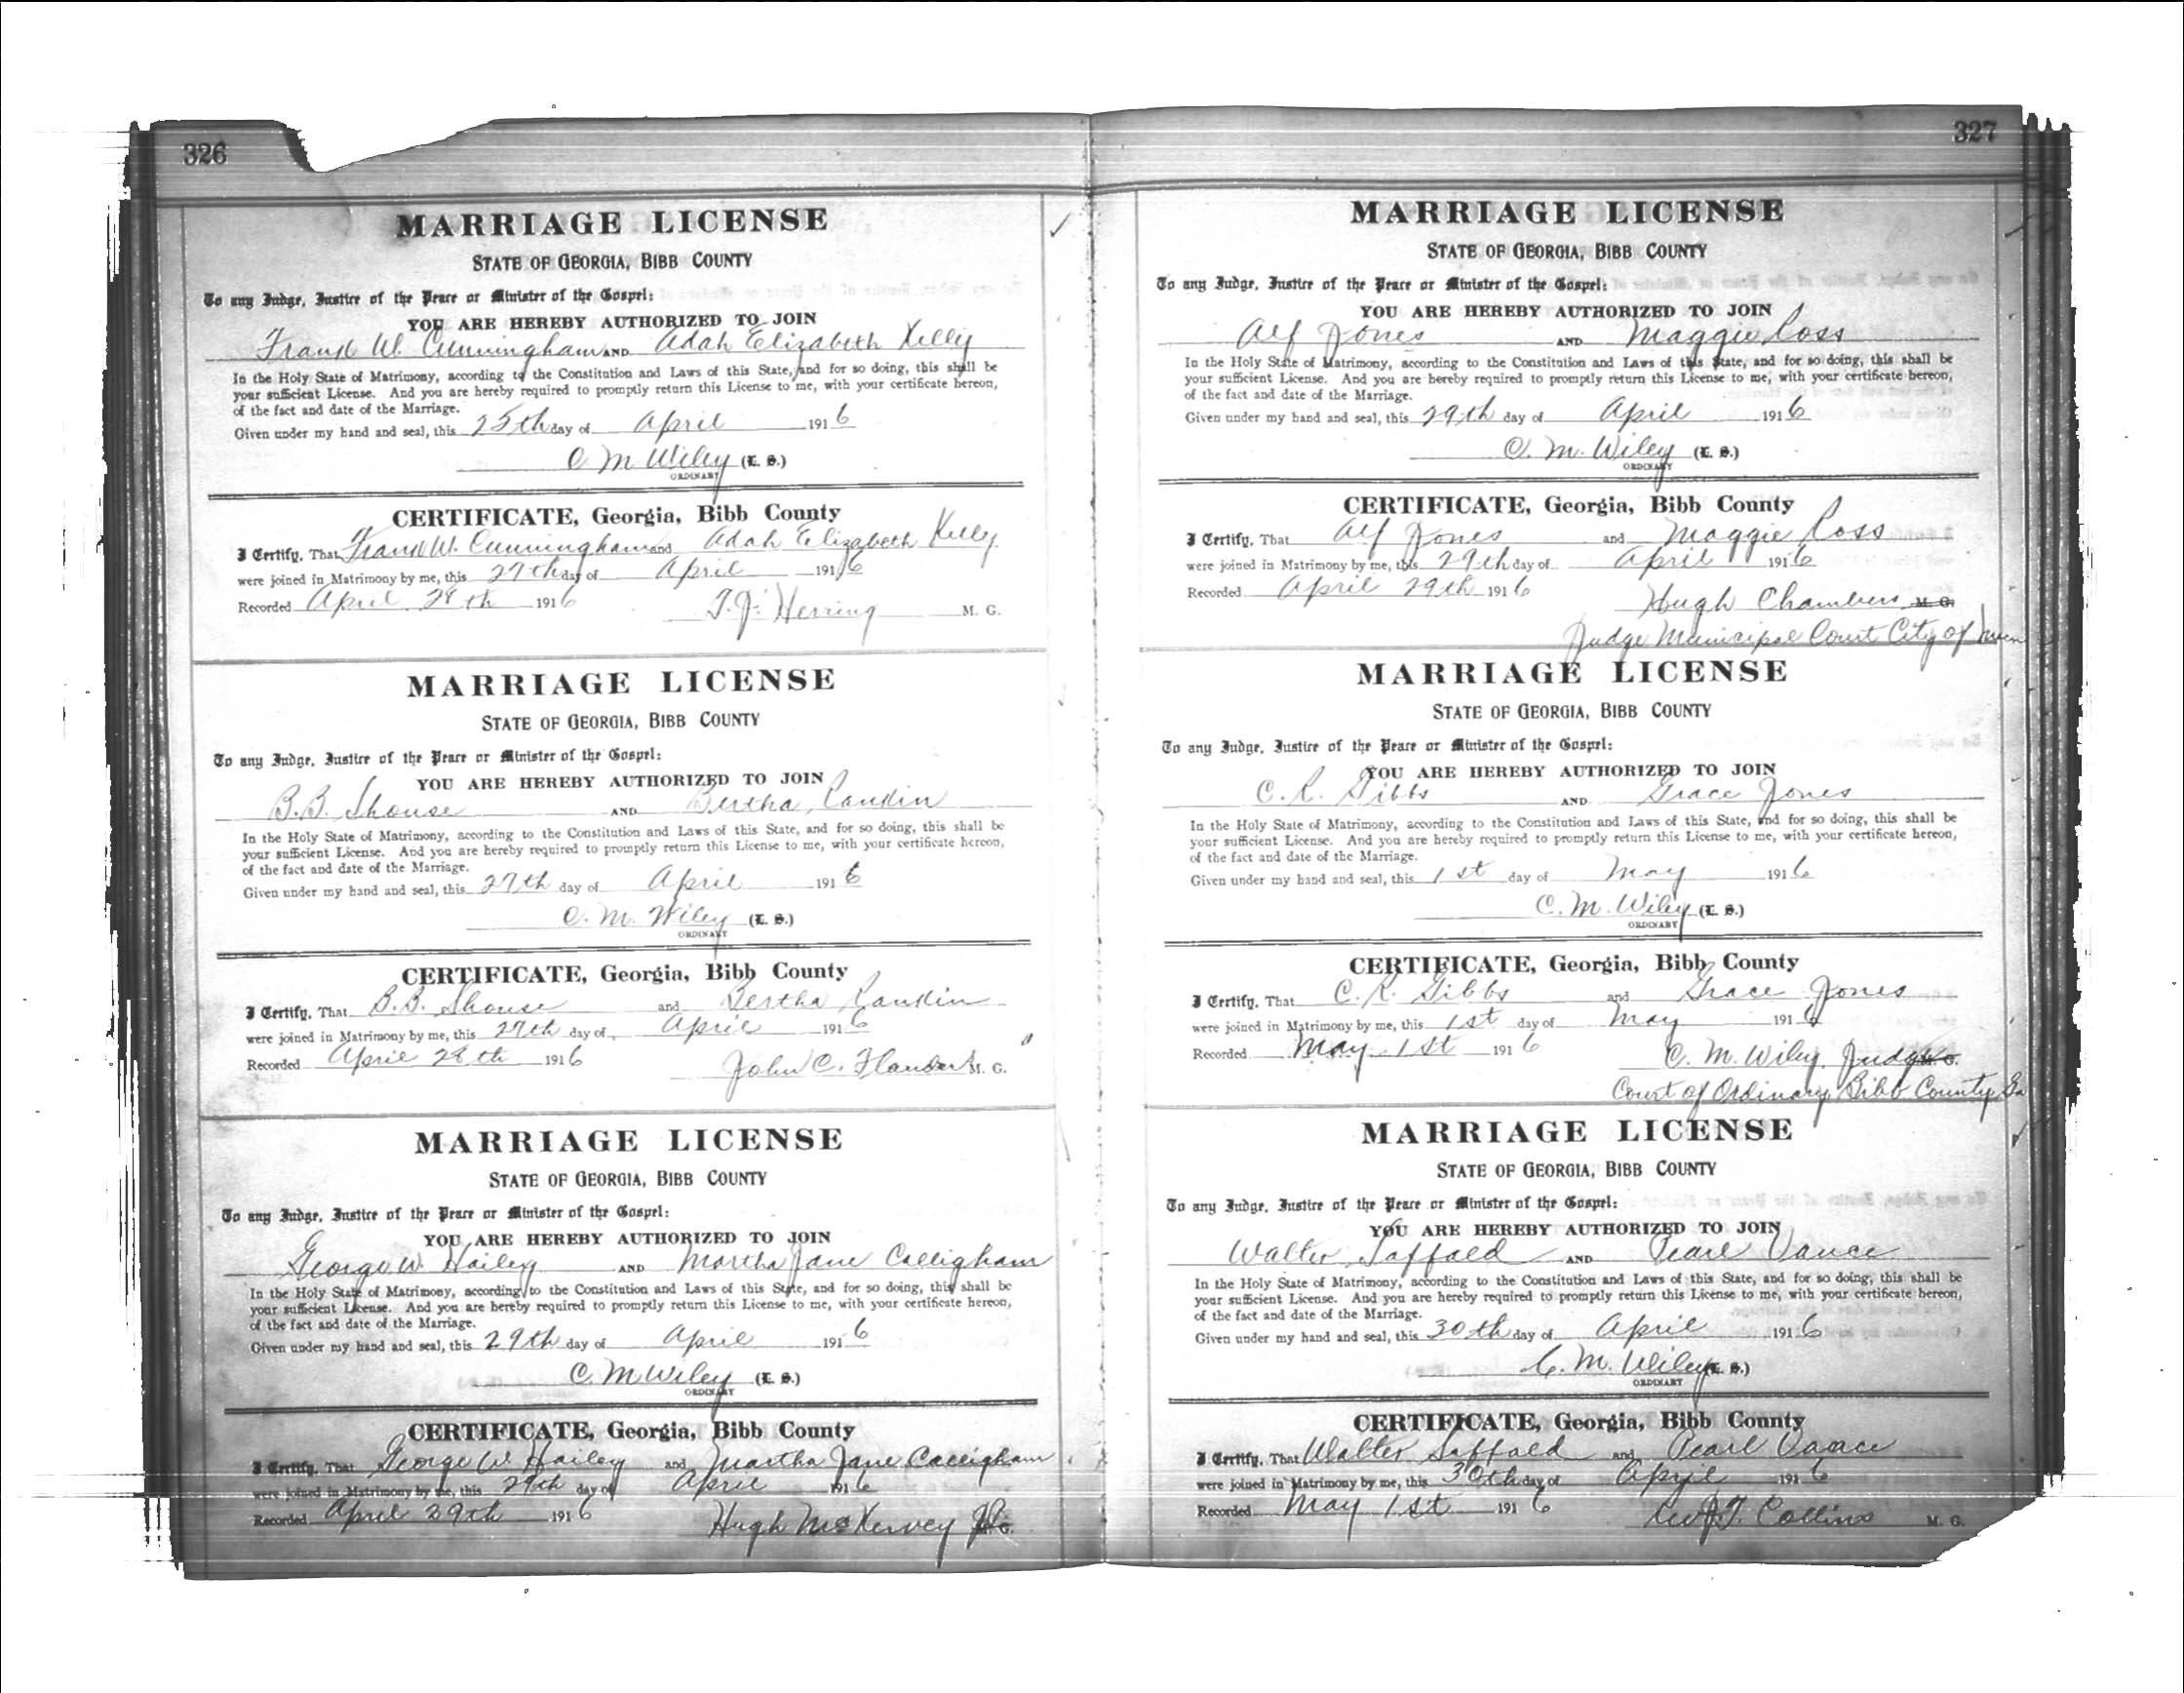 326
MARRIAGE LICENSE
STATE OF GEORGIA, BIBB COUNTY
To any Judge, Justice of the Peace or Minister of the Gospel:
YOU ARE HEREBY AUTHORIZED TO JOIN
Frank W. Cunningham AND Adah Elizabeth Kelly
In the Holy State of Matrimony, according to the Constitution and Laws of this State, and for so doing, this shall be
your sufficient License. And you are hereby required to promptly return this License to me, with your certificate hereon,
of the fact and date of the Marriage.
Given under my hand and seal, this 25th day of April 1916
C M Wiley (L. S.)
ORDINARY
CERTIFICATE, Georgia, Bibb County
I Certify, That Frank W. Cunningham and Adah Elizabeth Kelly
were joined in Matrimony by me, this 27th day of April 1916
Recorded April 28th 1916 T. J. Herring M. G.
MARRIAGE LICENSE
STATE OF GEORGIA, BIBB COUNTY
To any Judge, Justice of the Peace or Minister of the Gospel:
YOU ARE HEREBY AUTHORIZED TO JOIN
B. B. Shouse AND Bertha Rankin
In the Holy State of Matrimony, according to the Constitution and Laws of this State, and for so doing, this shall be
your sufficient License. And you are hereby required to promptly return this License to me, with your certificate hereon,
of the fact and date of the Marriage.
Given under my hand and seal, this 27th day of April 1916
C. M. Wiley (L. S.)
ORDINARY
CERTIFICATE, Georgia, Bibb County
I Certify, That B. B. Shouse and Bertha Rankin
were joined in Matrimony by me, this 27th day of April 1916
Recorded April 28th 1916 John C. Flanders M. G.
MARRIAGE LICENSE
STATE OF GEORGIA, BIBB COUNTY
To any Judge, Justice of the Peace or Minister of the Gospel:
YOU ARE HEREBY AUTHORIZED TO JOIN
George W. Hailey AND Martha Jane Calligham
In the Holy State of Matrimony, according to the Constitution and Laws of this State, and for so doing, this shall be
your sufficient License. And you are hereby required to promptly return this License to me, with your certificate hereon,
of the fact and date of the Marriage.
Given under my hand and seal, this 29th day of April 1916
C. M Wiley (L. S.)
ORDINARY
CERTIFICATE, Georgia, Bibb County
I Certify, That George W Hailey and Martha Jane Calligham
were joined in Matrimony by me, this 29th day of April 1916
Recorded April 29th 1916 Hugh McKervey
327
MARRIAGE LICENSE
STATE OF GEORGIA, BIBB COUNTY
To any Judge, Justice of the Peace or Minister of the Gospel:
YOU ARE HEREBY AUTHORIZED TO JOIN
Alf Jones AND Maggie Ross
In the Holy State of Matrimony, according to the Constitution and Laws of this State, and for so doing, this shall be
your sufficient License. And you are hereby required to promptly return this License to me, with your certificate hereon,
of the fact and date of the Marriage.
Given under my hand and seal, this 29th day of April 1916
C. M. Wiley (L. S.)
ORDINARY
CERTIFICATE, Georgia, Bibb County
I Certify, That Alf Jones and Maggie Ross
were joined in Matrimony by me, this 29th day of April 1916
Recorded April 29th 1916 Hugh Chambers M. G.
Judge Municipal Court City of
MARRIAGE LICENSE
STATE OF GEORGIA, BIBB COUNTY
To any Judge, Justice of the Peace or Minister of the Gospel:
YOU ARE HEREBY AUTHORIZED TO JOIN
C. R. Gibbs AND Grace Jones
In the Holy State of Matrimony, according to the Constitution and Laws of this State, and for so doing, this shall be
your sufficient License. And you are hereby required to promptly return this License to me, with your certificate hereon,
of the fact and date of the Marriage.
Given under my hand and seal, this 1st day of May 1916
C. M. Wiley (L. S.)
ORDINARY
CERTIFICATE, Georgia, Bibb County
I Certify, That C. R. Gibbs and Grace Jones
were joined in Matrimony by me, this 1st day of May 1916
Recorded May 1st 1916 C. M. Wiley, Judge
Court of Ordinary, Bibb County, Ga
MARRIAGE LICENSE
STATE OF GEORGIA, BIBB COUNTY
To any Judge, Justice of the Peace or Minister of the Gospel:
YOU ARE HEREBY AUTHORIZED TO JOIN
Walter Saffold AND Pearl Vance
In the Holy State of Matrimony, according to the Constitution and Laws of this State, and for so doing, this shall be
your sufficient License. And you are hereby required to promptly return this License to me, with your certificate hereon,
of the fact and date of the Marriage.
Given under my hand and seal, this 30th day of April 1916
C. M. Wiley (L. S.)
ORDINARY
CERTIFICATE, Georgia, Bibb County
I Certify, That Walter Saffold and Pearl Vance
were joined in Matrimony by me, this 30th day of April 1916
Recorded May 1st 1916 Rev J. T. Collins M. G.